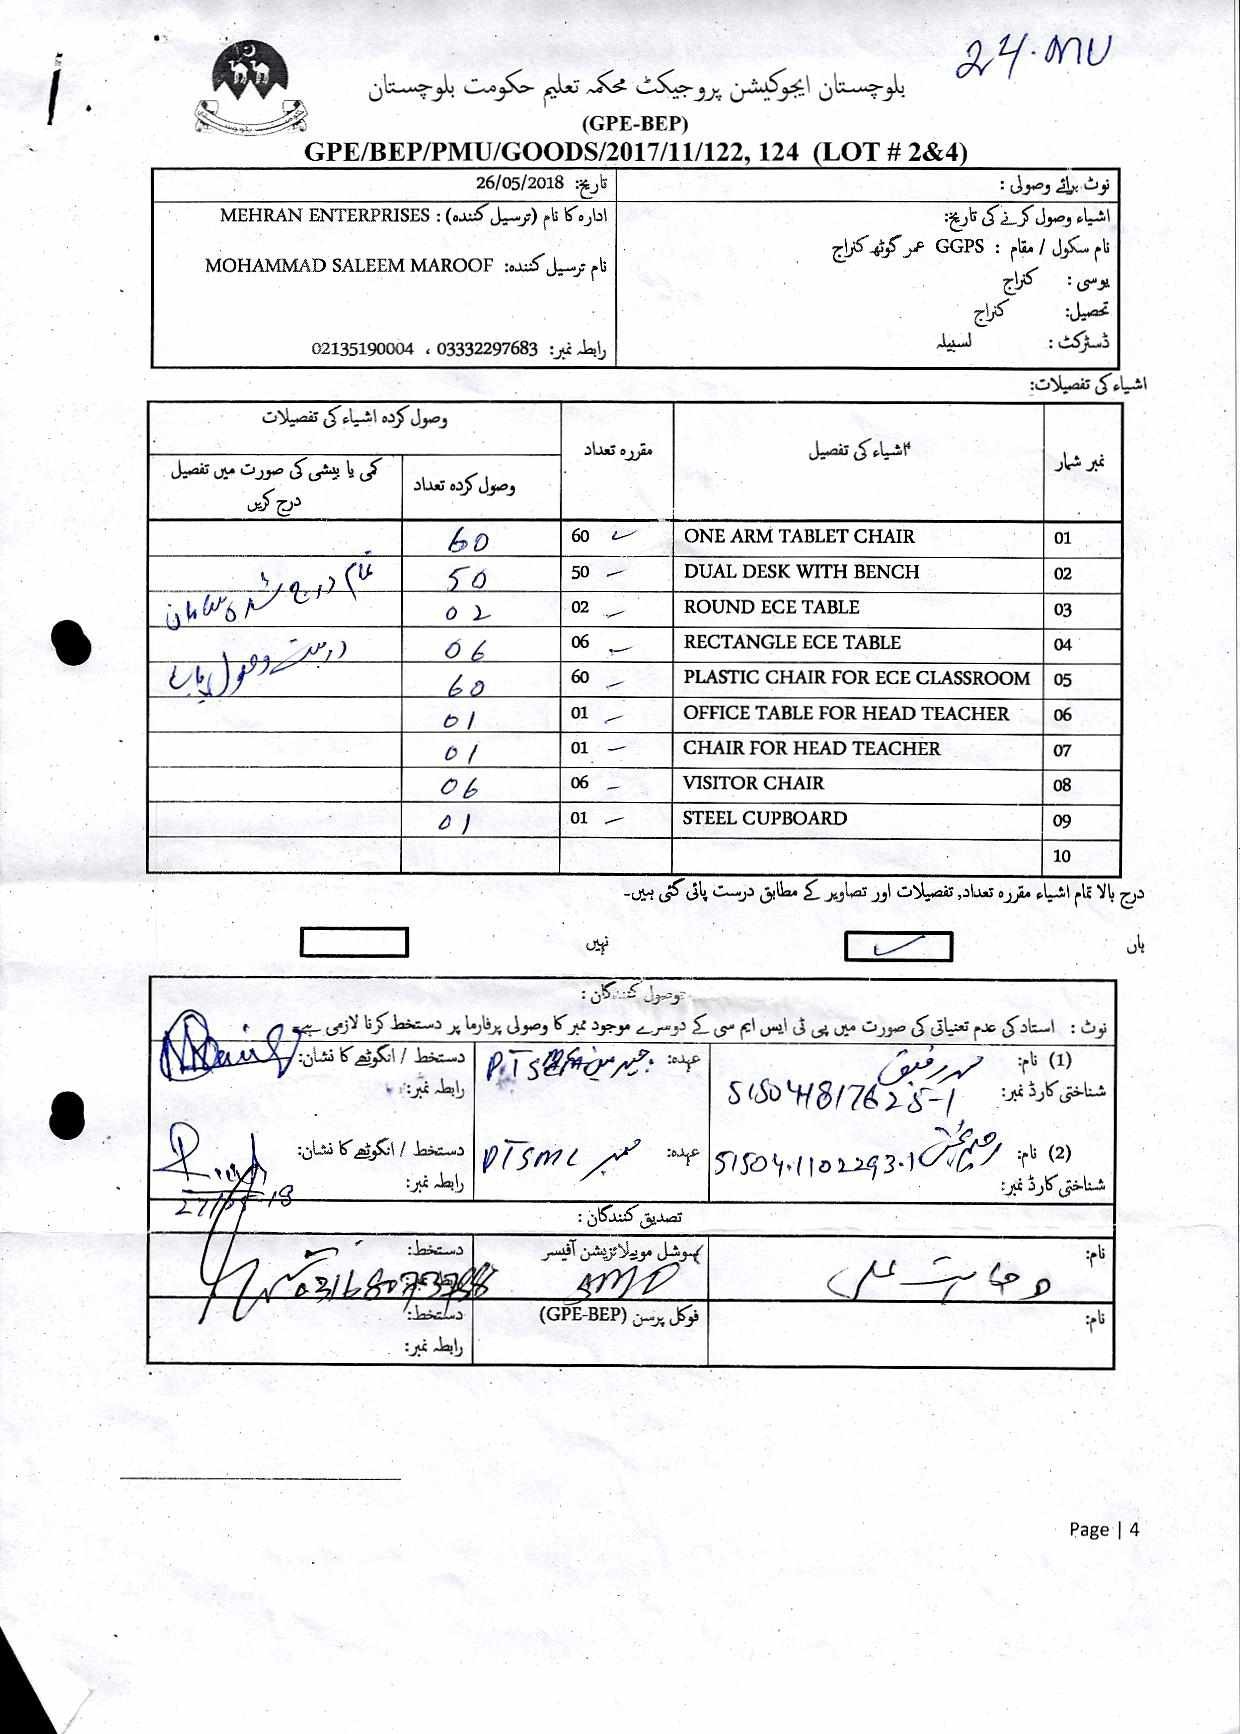 24.MU
بلوچستان ایجوکیشن پروجیکٹ محکمہ تعلیم حکومت بلوچستان
(GPE-BEP)
GPE/BEP/PMU/GOODS/2017/11/122, 124 (LOT # 2&4)
نوٹ برائے وصولی :
تاریخ: 26/05/2018
اشیاء وصول کرنے کی تاریخ:
ادارہ کا نام (ترسیل کنندہ) : MEHRAN ENTERPRISES
نام سکول / مقام : GGPS عمر گوٹھ کنراج
نام ترسیل کنندہ: MOHAMMAD SALEEM MAROOF
یو سی : کنراج
تحصیل: کنراج
ڈسٹرکٹ : لسبیلہ
رابطہ نمبر: 03332297683 ، 02135190004
اشیاء کی تفصیلات:
نمبر شمار
اشیاء کی تفصیل
مقررہ تعداد
وصول کردہ اشیاء کی تفصیلات
وصول کردہ تعداد
کمی یا بیشی کی صورت میں تفصیل درج کریں
01 ONE ARM TABLET CHAIR 60 60
02 DUAL DESK WITH BENCH 50 50
03 ROUND ECE TABLE 02 02
04 RECTANGLE ECE TABLE 06 06
05 PLASTIC CHAIR FOR ECE CLASSROOM 60 60
06 OFFICE TABLE FOR HEAD TEACHER 01 01
07 CHAIR FOR HEAD TEACHER 01 01
08 VISITOR CHAIR 06 06
09 STEEL CUPBOARD 01 01
10
تمام درج شدہ سامان
درست وصول پایا ہے
درج بالا تمام اشیاء مقررہ تعداد, تفصیلات اور تصاویر کے مطابق درست پائی گئی ہیں۔
ہاں نہیں
وصول کنندگان :
نوٹ : استاد کی عدم تعیناتی کی صورت میں پی ٹی ایس ایم سی کے دوسرے موجود ممبر کا وصولی پرفارما پر دستخط کرنا لازمی ہے۔
(1) نام: محمد رفیق عہدہ: چیئرمین دستخط / انگوٹھے کا نشان:
شناختی کارڈ نمبر: 51504-4817625-1 رابطہ نمبر:
(2) نام: رحیم بخش عہدہ: ممبر PTSMC دستخط / انگوٹھے کا نشان:
شناختی کارڈ نمبر: 51504-1102293-1 رابطہ نمبر:
تصدیق کنندگان :
نام: وجاہت علی سوشل موبیلائزیشن آفیسر SMO دستخط:
نام: فوکل پرسن (GPE-BEP) دستخط:
رابطہ نمبر:
Page | 4